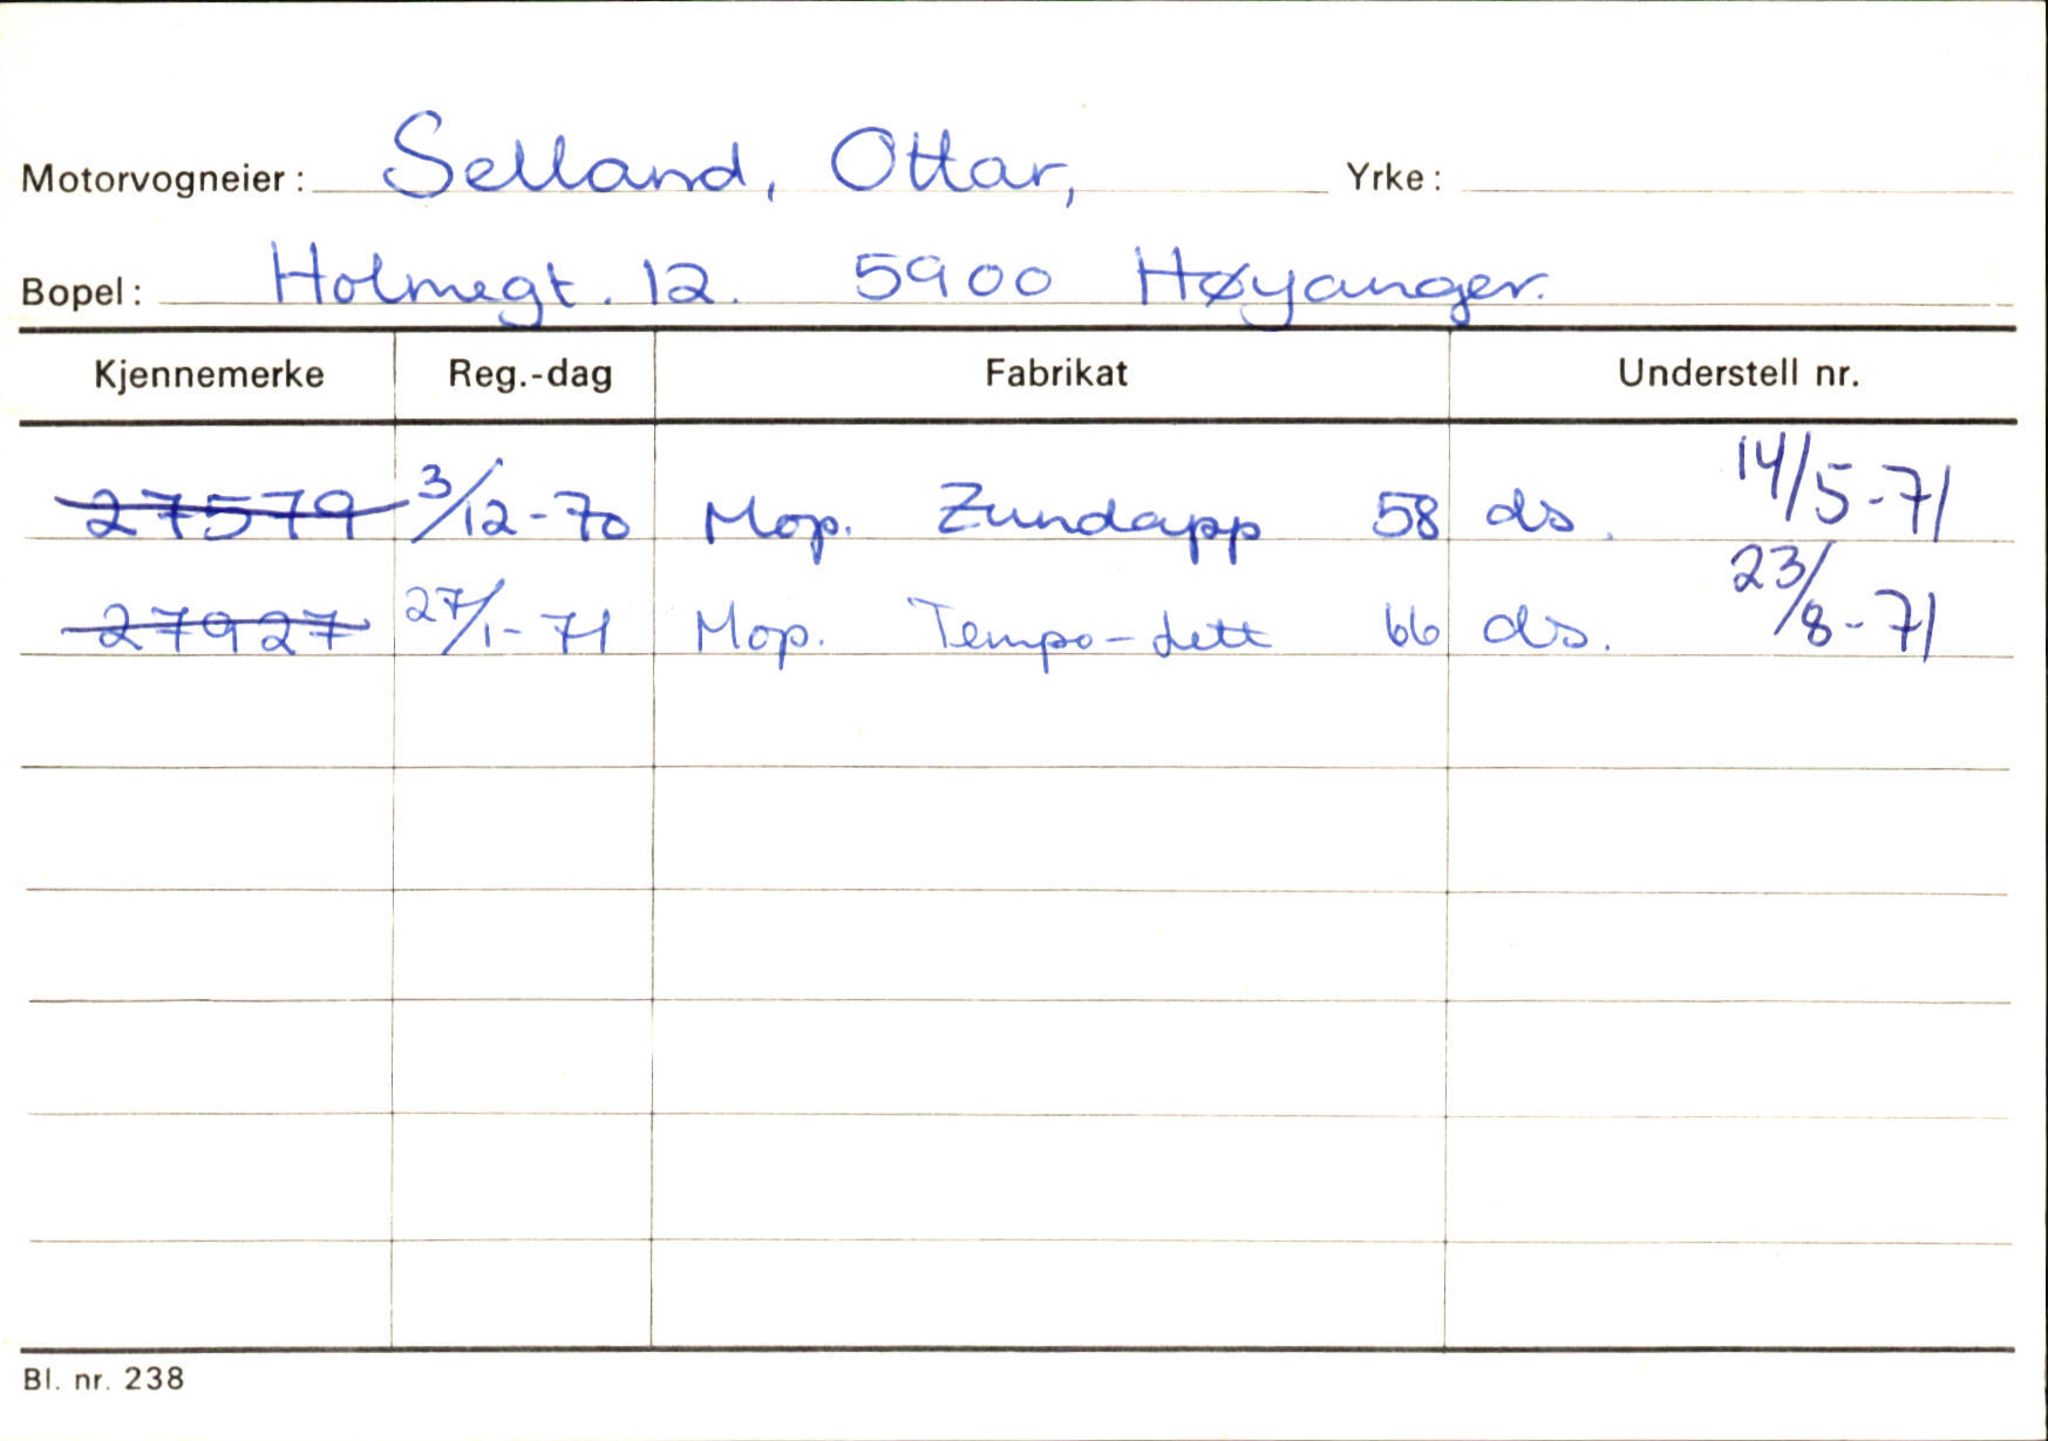 Motorvogneier: Selland, Ottar, Yrke:
Bopel: Holmegt. 12. 5900 Høyanger.
Kjennemerke Reg.-dag Fabrikat Understell nr.
27579 3/12-70 Mop. Zundapp 58 ds. 14/5-71
27927 27/1-71 Mop. Tempo-Lett 66 ds. 23/8-71
Bl. nr. 238